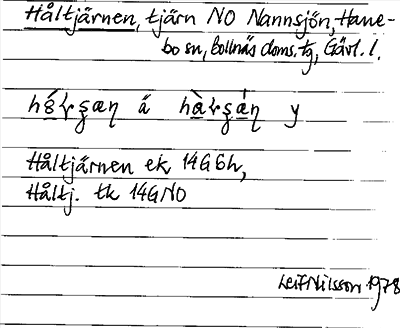 Håltjärnen, tjärn NO Nannsjön, Hane-
bo sn, Bollnäs doms. tg, Gävl. l.
å y
Håltjärnen ek 14G6h,
Håltj. tk 14GNO
Leif Nilsson 1978